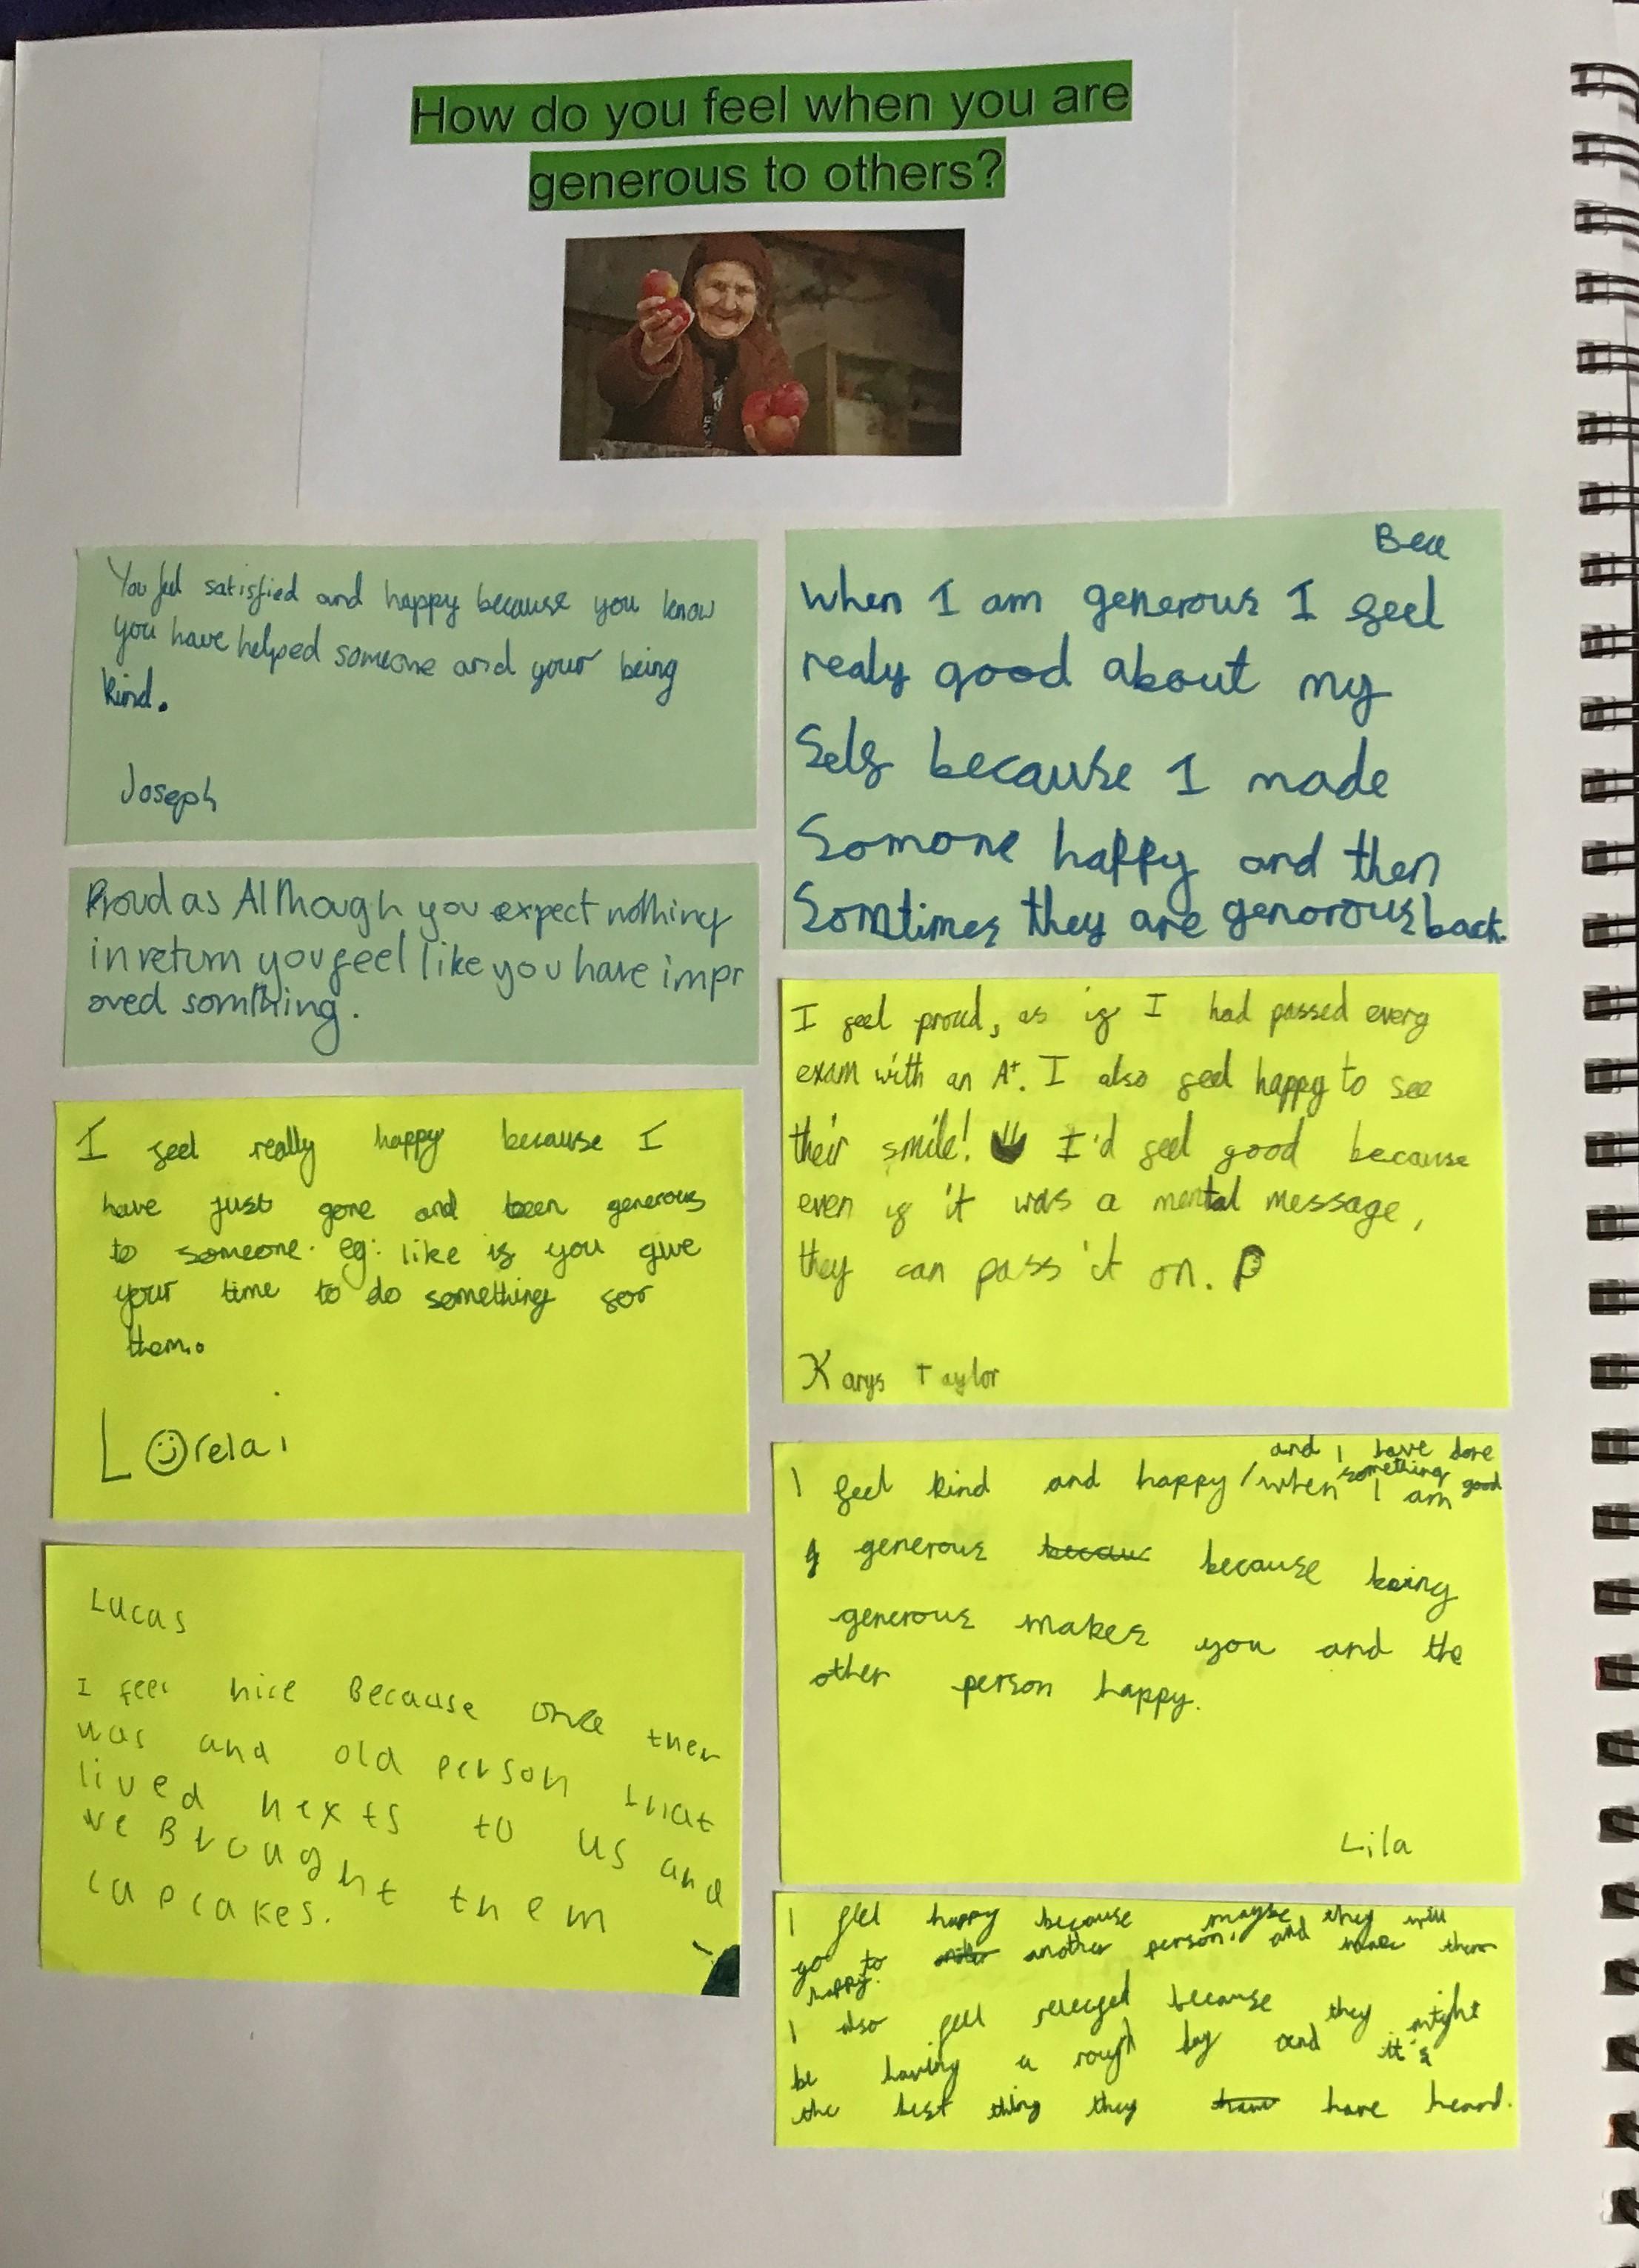 How do you feel when you are
generous to others?
You feel satisfied and happy because you know
you have helped someone and your being
kind.
Joseph
Proud as Although you expect nothing
in return you feel like you have impr
oved somthing.
I feel really happy because I
have just gone and been generous
to someone. eg: like if you give
your time to do something for
them.
Lorelai
Lucas
I feel nice Because once ther
was and old person that
lived nexts to us and
we Brought them
cupcakes.
Bea
When I am generous I feel
realy good about my
self because I made
Somone happy and then
Somtimes they are genorous back.
I feel proud, as if I had passed every
exam with an A+. I also feel happy to see
their smile! I'd feel good because
even if it was a mental message,
they can pass it on.
Karys Taylor
and I have done
something good
I feel kind and happy / when I am
generous becaus because being
generous makes you and the
other person happy.
Lila
I feel happy because maybe they will
go to another person, and make them
happy.
I also feel because they might
be having a rough day and it's
the best thing they have heard.